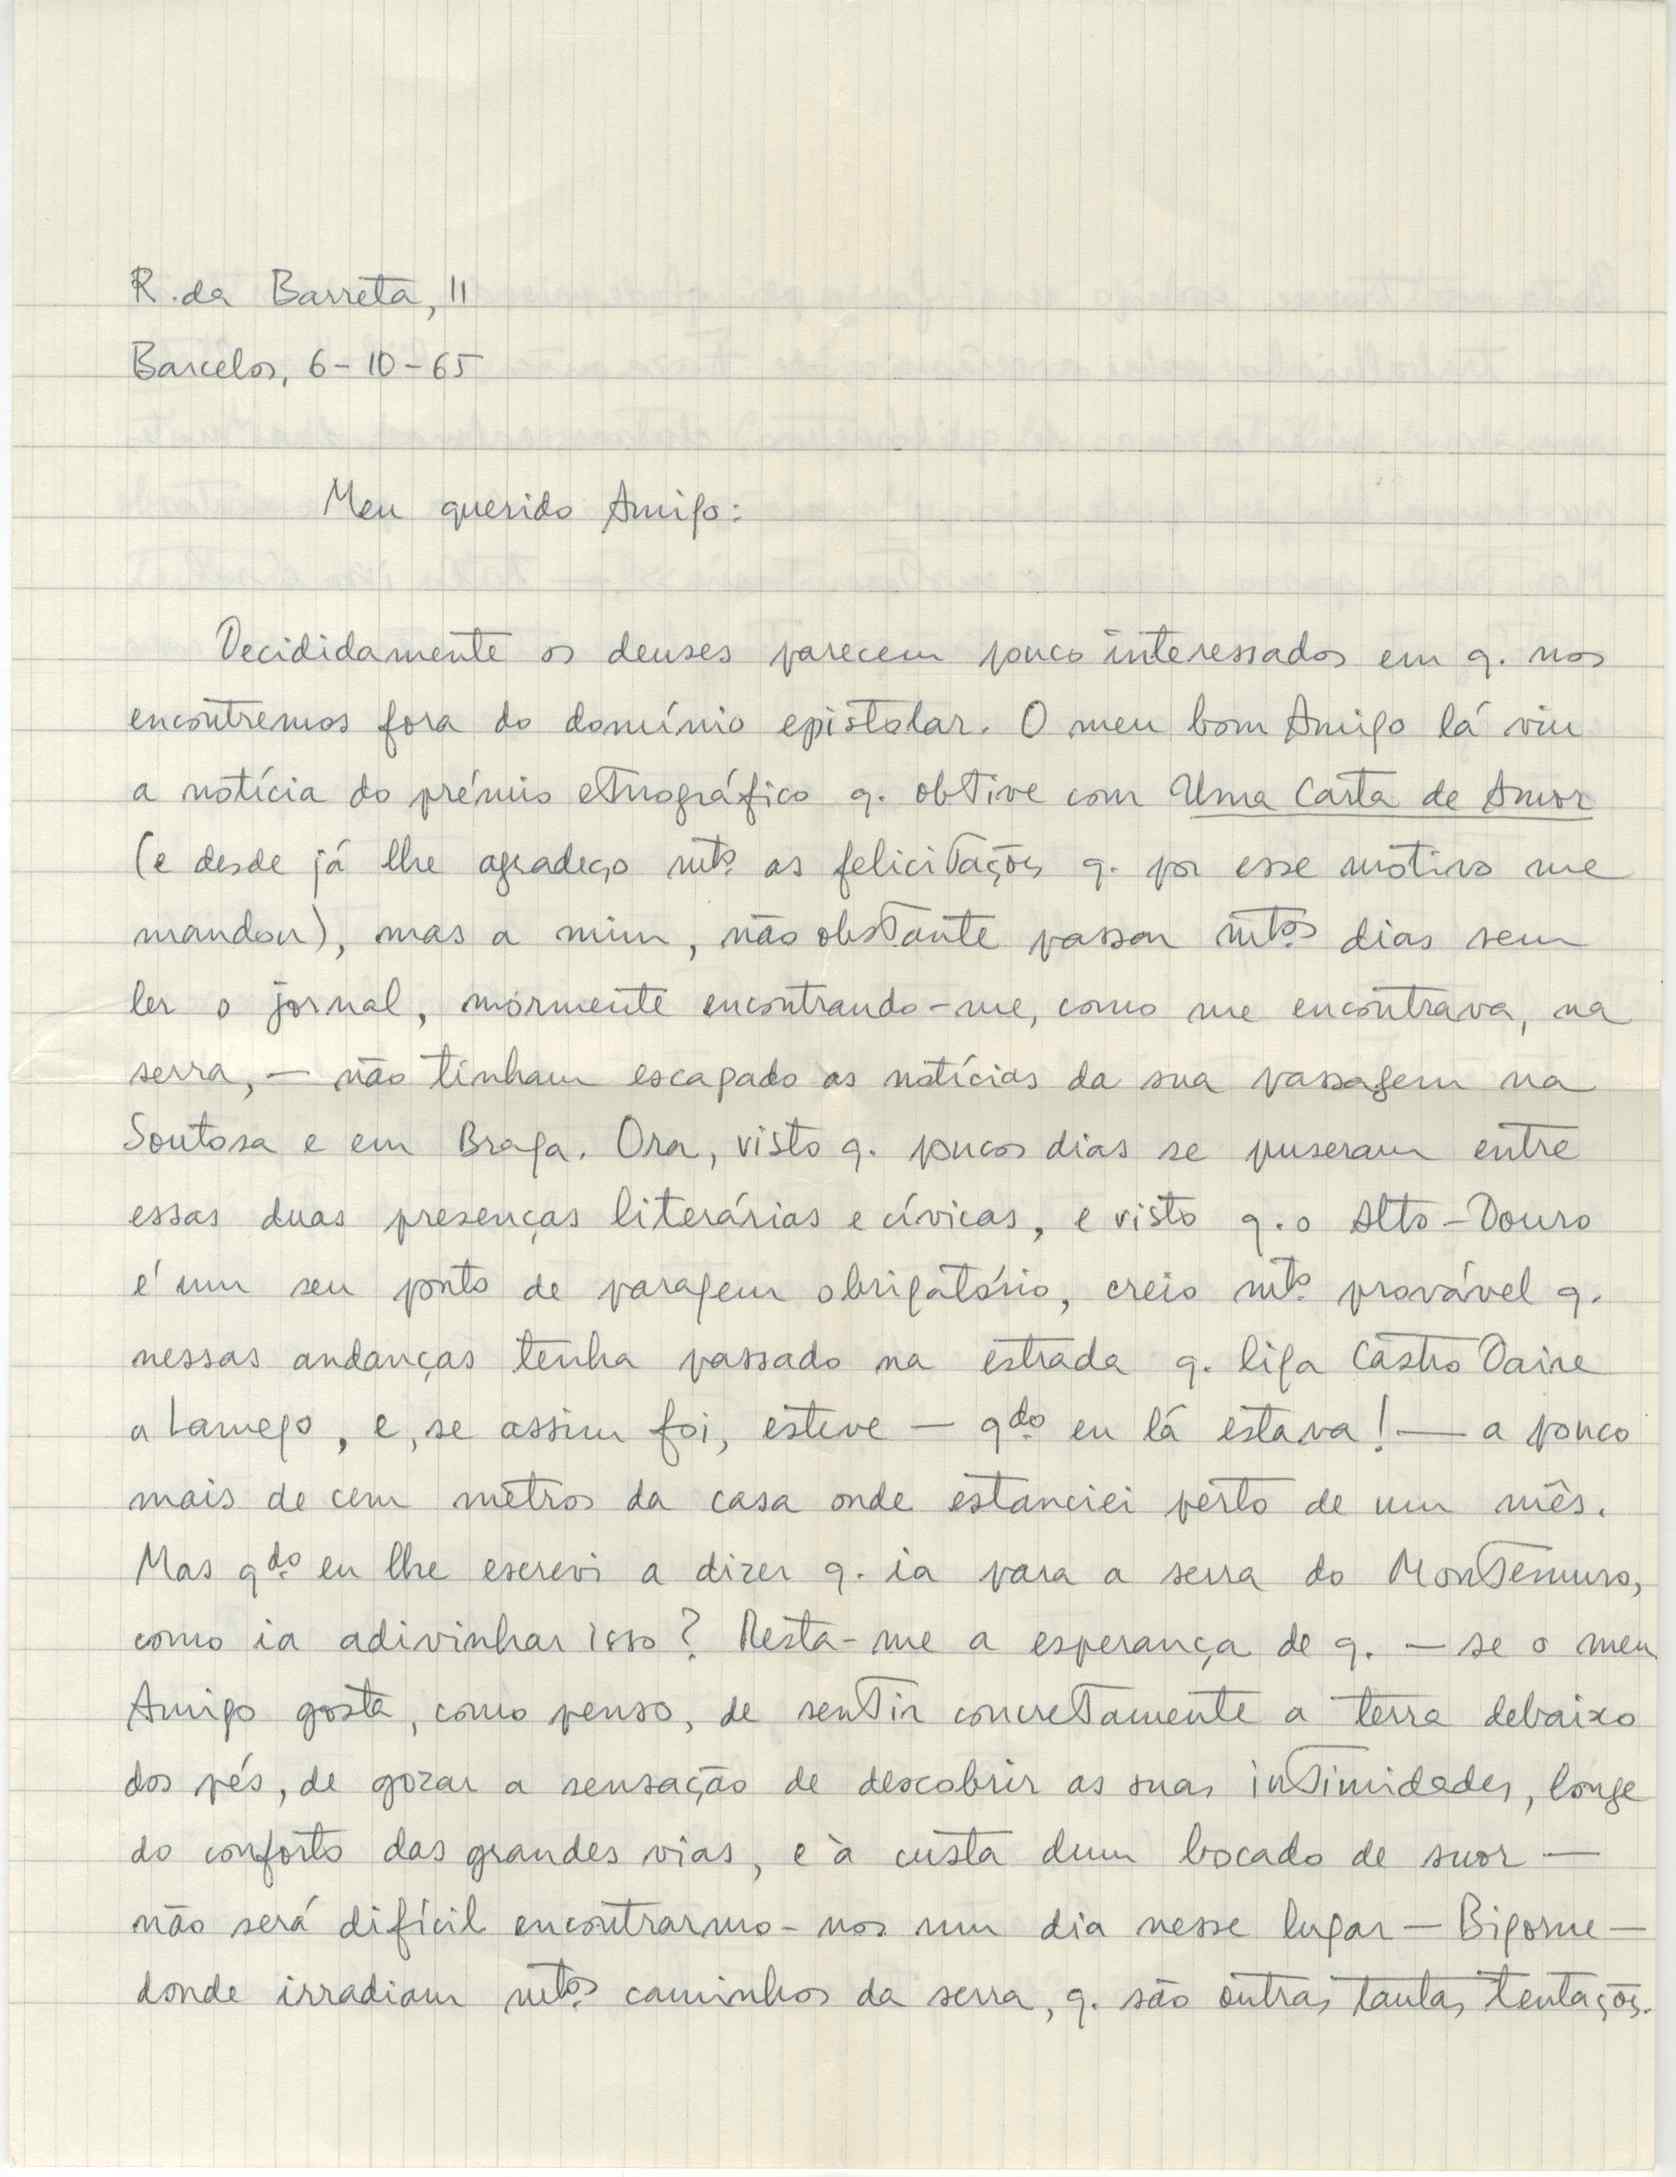 R. da Barreta, 11
Barcelos, 6-10-65
Meu querido Amigo:
Decididamente os deuses parecem pouco interessados em q. nos
encontremos fora do domínio epistolar. O meu bom Amigo lá viu
a notícia do prémio etnográfico q. obtive com Uma Carta de Amor
(e desde já lhe agradeço mtº as felicitações q. por esse motivo me
mandou), mas a mim, não obstante passar mtºs dias sem
ler o jornal, mòrmente encontrando-me, como me encontrava, na
serra, — não tinham escapado as notícias da sua passagem na
Soutosa e em Braga. Ora, visto q. poucos dias se puseram entre
essas duas presenças literárias e cívicas, e visto q. o Alto-Douro
é um seu ponto de paragem obrigatório, creio mtº provável q.
nessas andanças tenha passado na estrada q. liga Castro Daire
a Lamego, e, se assim foi, esteve — qdo eu lá estava! — a pouco
mais de cem metros da casa onde estanciei perto de um mês.
Mas qdo eu lhe escrevi a dizer q. ia para a serra do Montemuro,
como ia adivinhar isso? Resta-me a esperança de q. — se o meu
Amigo gosta, como penso, de sentir concretamente a terra debaixo
dos pés, de gozar a sensação de descobrir as suas intimidades, longe
do conforto das grandes vias, e à custa dum bocado de suor —
não será difícil encontrarmo-nos um dia nesse lugar — Bigorne —
donde irradiam mtºs caminhos da serra, q. são outras tantas tentações.